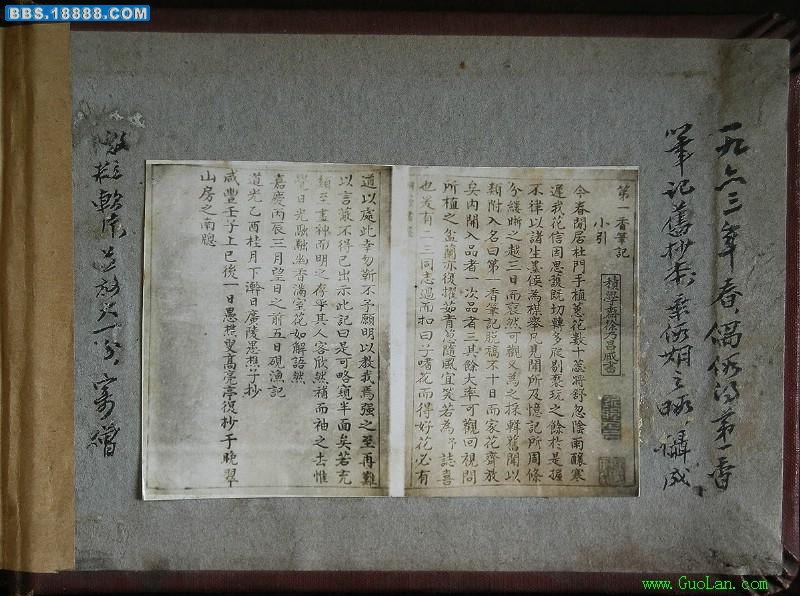 BBS.18888.COM
第一香筆記
小引
積學齋徐乃昌藏書
今春閒居杜門手植蕙花數十蕊將舒忽陰雨釀寒
遲我花信因思護既切
不律以諸生墨侯為楳舉凡見聞所及憶記所周條
分縷晰之越三日而裒然可觀又為之採輯舊聞以
類附入名曰第一香筆記脱稿不十日而家花齊放
矣內開入品者一次品者三其餘大率可觀回視問
所植之盆蘭亦復擢茹青葱隨風宜笑若為予誌喜
也爰有二三同志過而扣曰子嗜花而得好花必有
道以處此幸勿靳不予願明以教我焉強之至再難
以言蔽不得已出示此記曰是可略窺半面矣若充
類至盡神而明之存乎其人客欣然補而袖之去惟
覺日光融融幽香滿室花如解語然
嘉慶丙辰三月望日之前五日硯漁記
道光乙酉桂月下澣日廣陵愚樵子抄
咸豐壬子上巳後一日愚樵叟高亮亭復抄于晚翠
山房之南牕
一九六三年春,偶假得第一香
筆記舊抄本
www.GuoLan.com